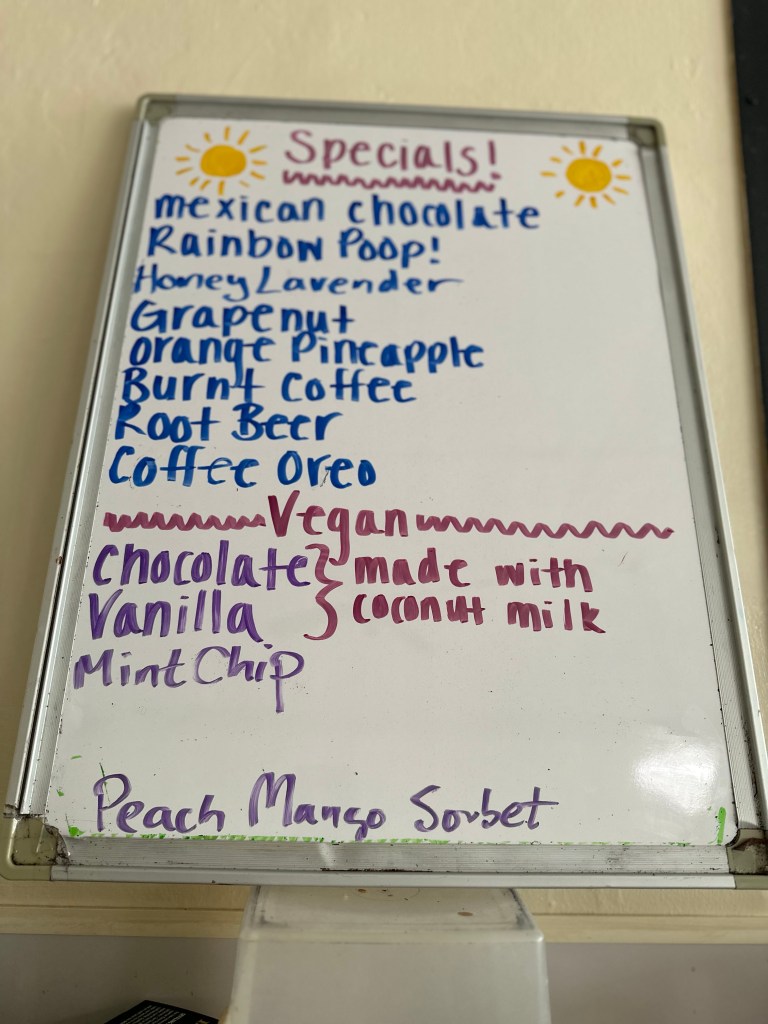 Specials!
mexican chocolate
Rainbow Poop!
Honey Lavender
Grapenut
orange Pineapple
Burnt Coffee
Root Beer
Coffee Oreo
Vegan
Chocolate } made with
Vanilla } coconut milk
Mint Chip
Peach Mango Sorbet